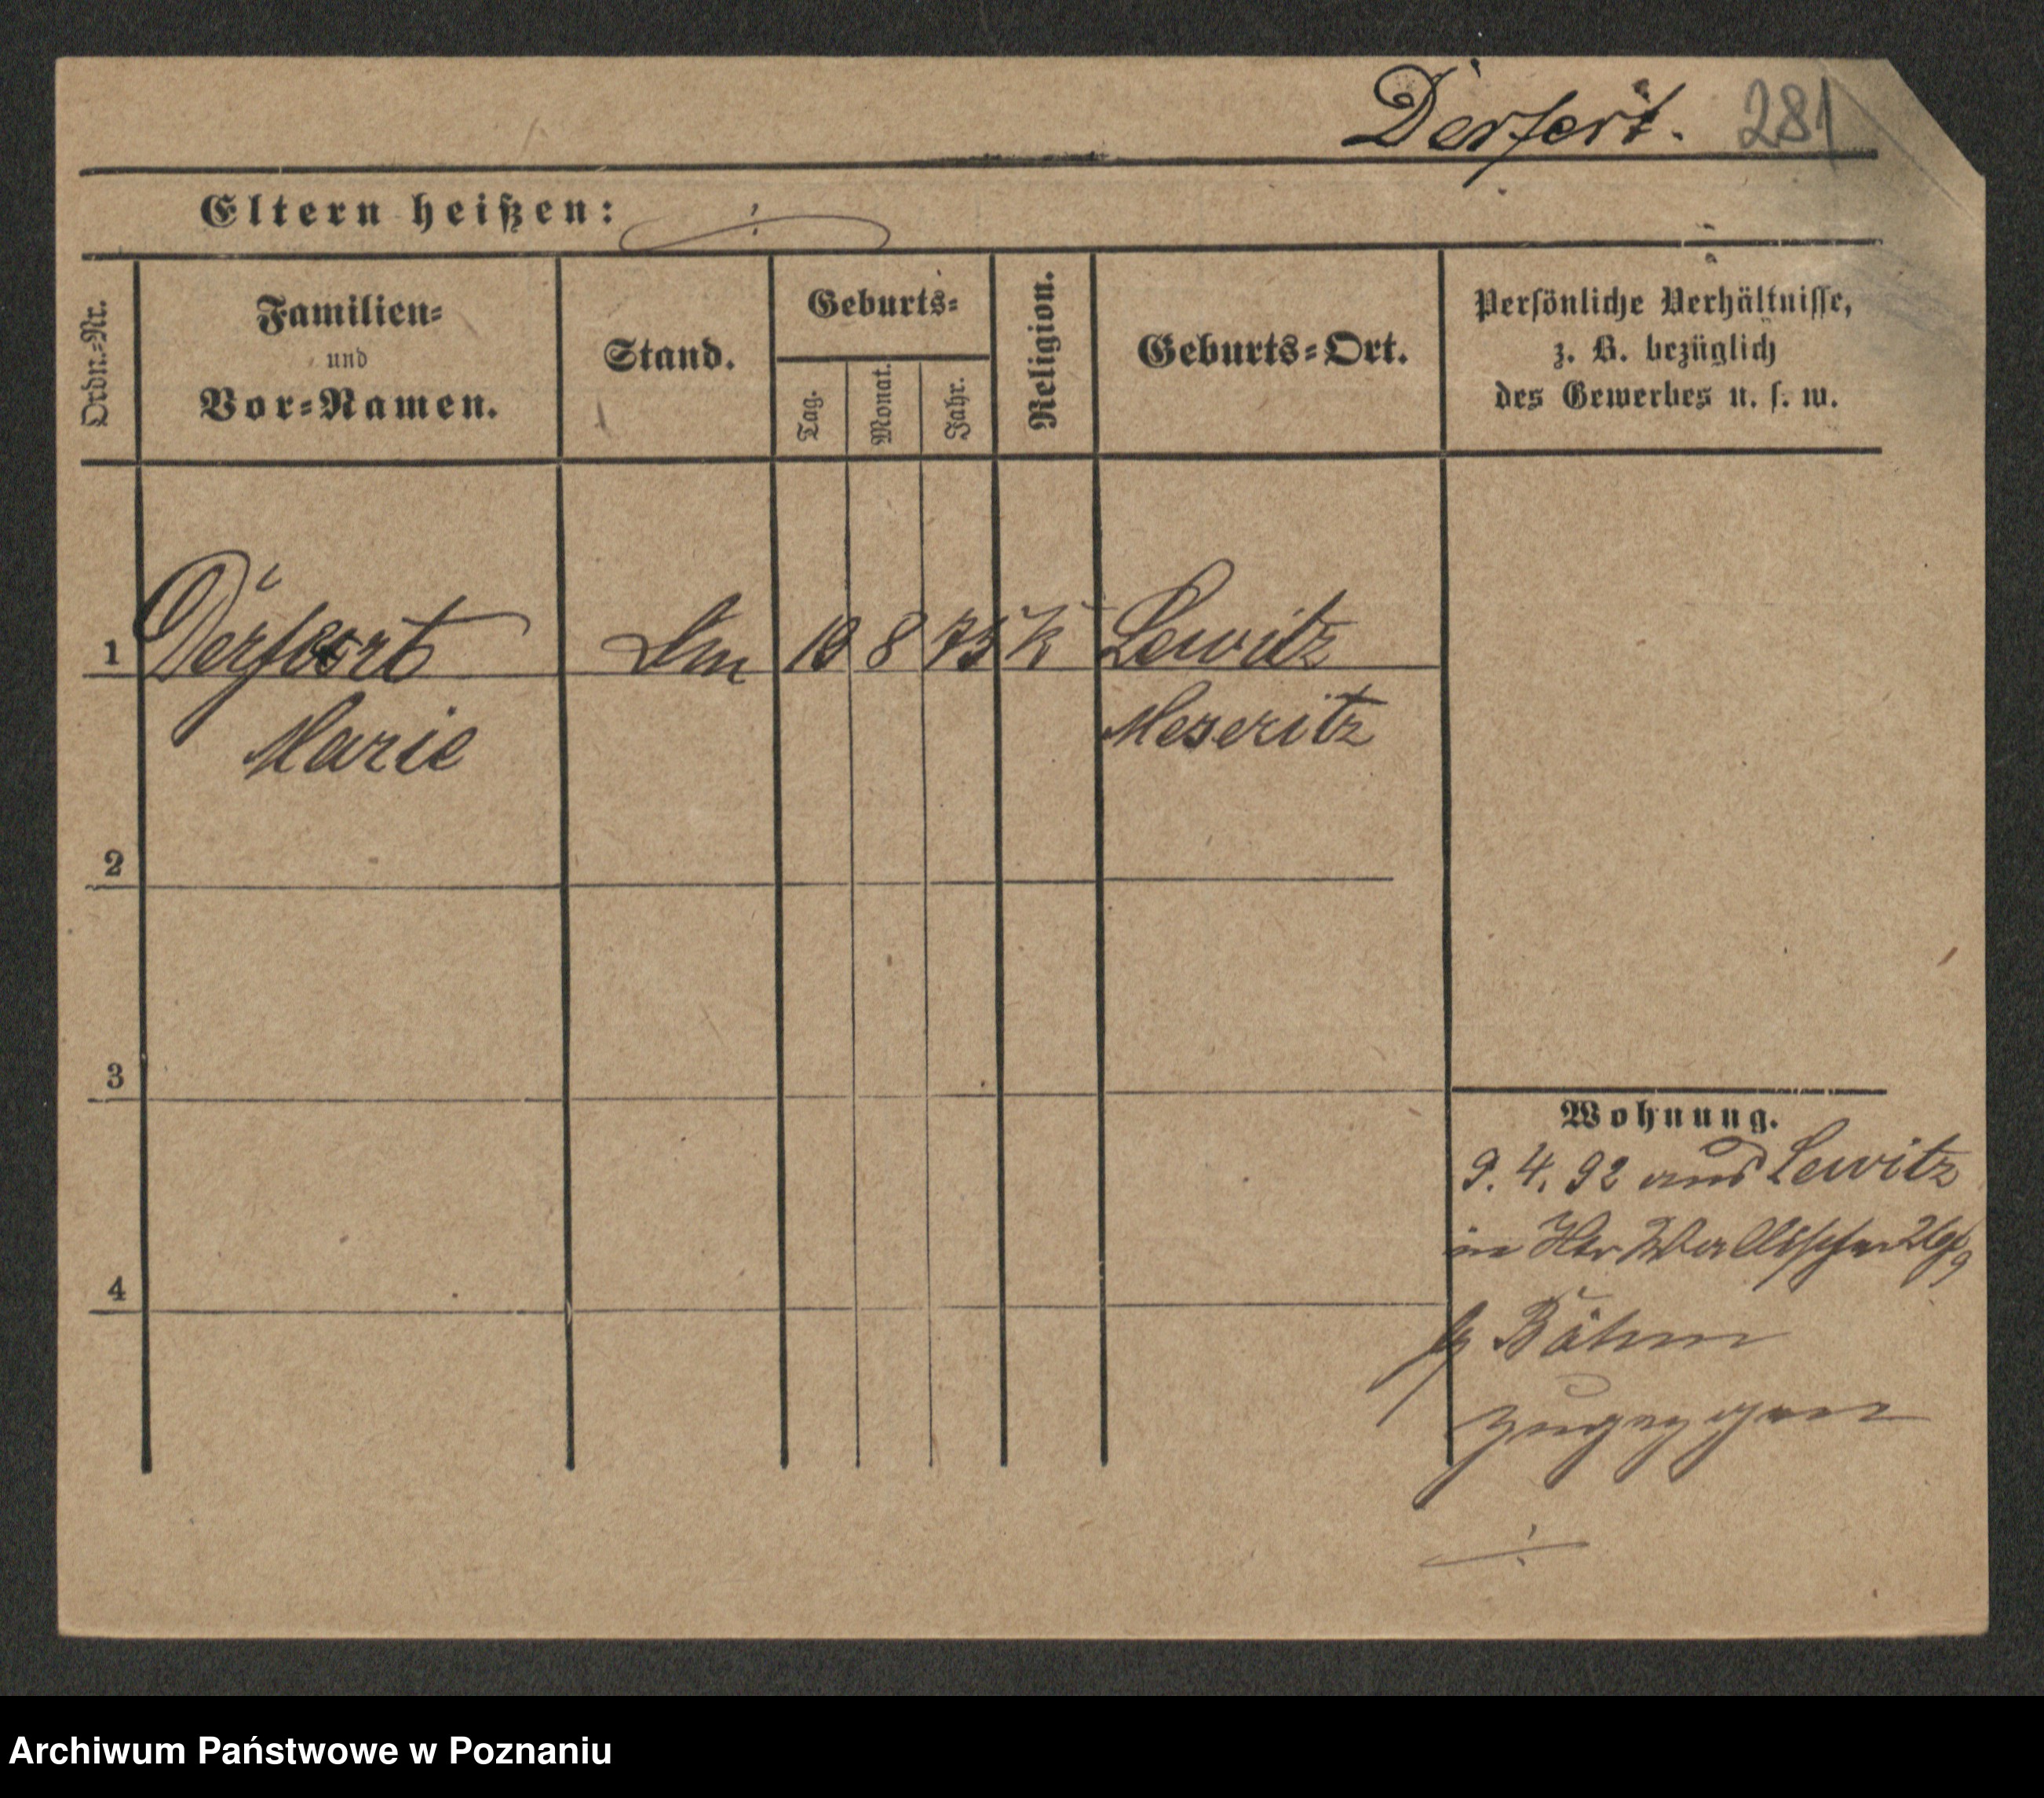 Derfert. 281
Eltern heißen: ⁒
Ordn.-Nr.
Familien-
und
Vor-Namen.
Stand.
Geburts-
Tag.
Monat.
Jahr.
Religion.
Geburts-Ort.
Persönliche Verhältnisse,
z. B. bezüglich
des Gewerbes u. s. w.
1 Derfert 8 75 K Lewitz
Marie Meseritz
2
3
4
Wohnung.
9. 4. 92 aus Lewitz
in
Böhm
zugezogen
Archiwum Państwowe w Poznaniu